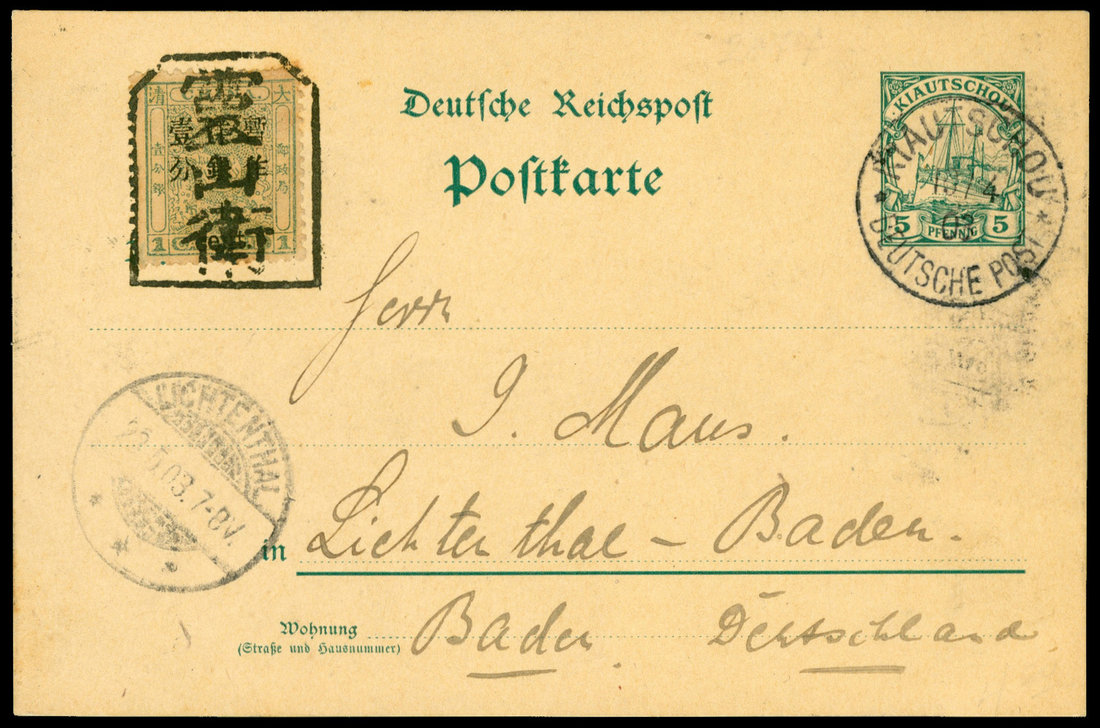 靈山衛
大清
壹分銀
暫
壹分
1
1
Deutsche Reichspost
Postkarte
KIAUTSCHOU
5 PFENNIG 5
KIAUTSCHOU
4
03
* DEUTSCHE POST *
Herrn
J. Maus.
in Lichtenthal - Baden.
Wohnung
(Straße und Hausnummer)
Baden. Deutschland
LICHTENTHAL
03.7-8V.